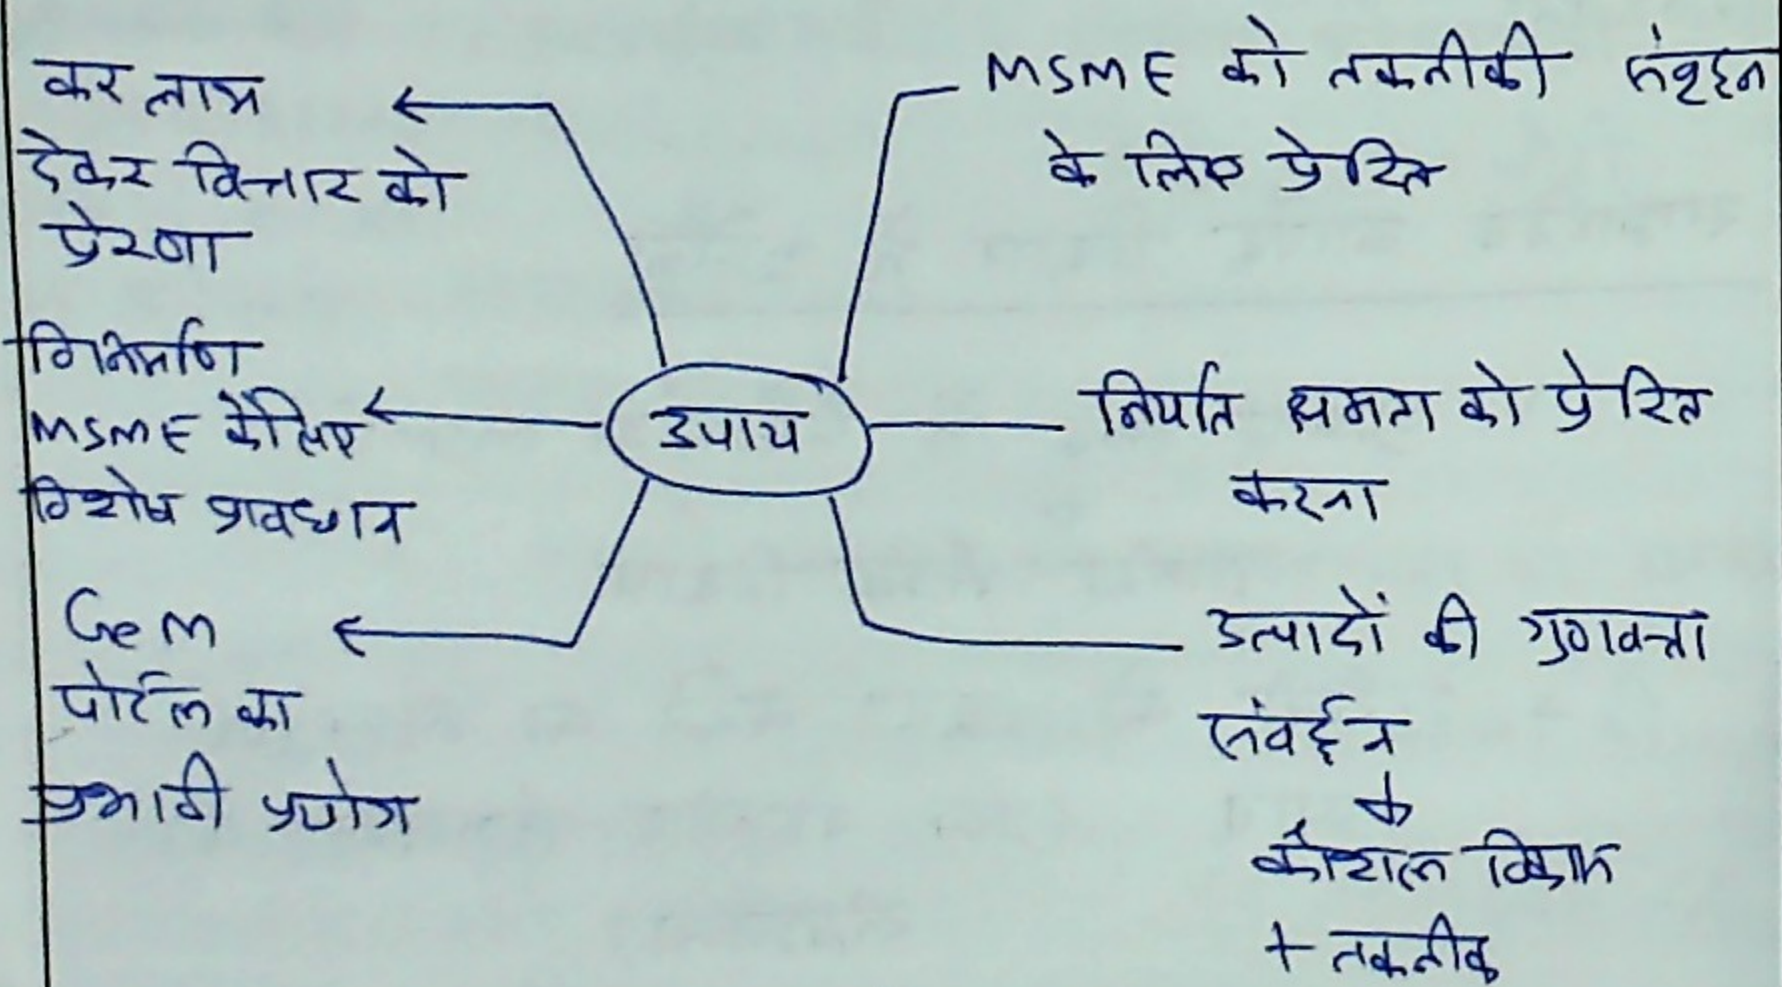 कर लाभ
देकर विस्तार को
प्रेरणा
विनिर्माण
MSME के लिए
विशेष प्रावधान
GeM
पोर्टल का
प्रभावी प्रयोग
उपाय
MSME को तकनीकी
के लिए प्रेरित
निर्यात क्षमता को प्रेरित
करना
उत्पादों की गुणवत्ता
संवर्द्धन
कौशल विकास
+ तकनीक